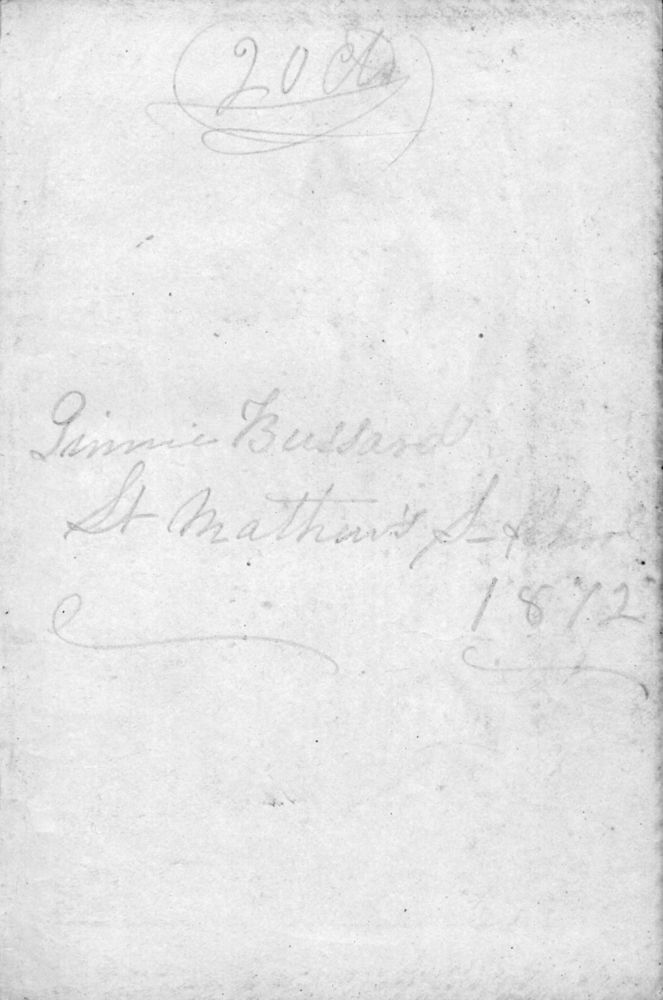 20 Cts
Ginnie Bussard
St Mathew's S- School
1872